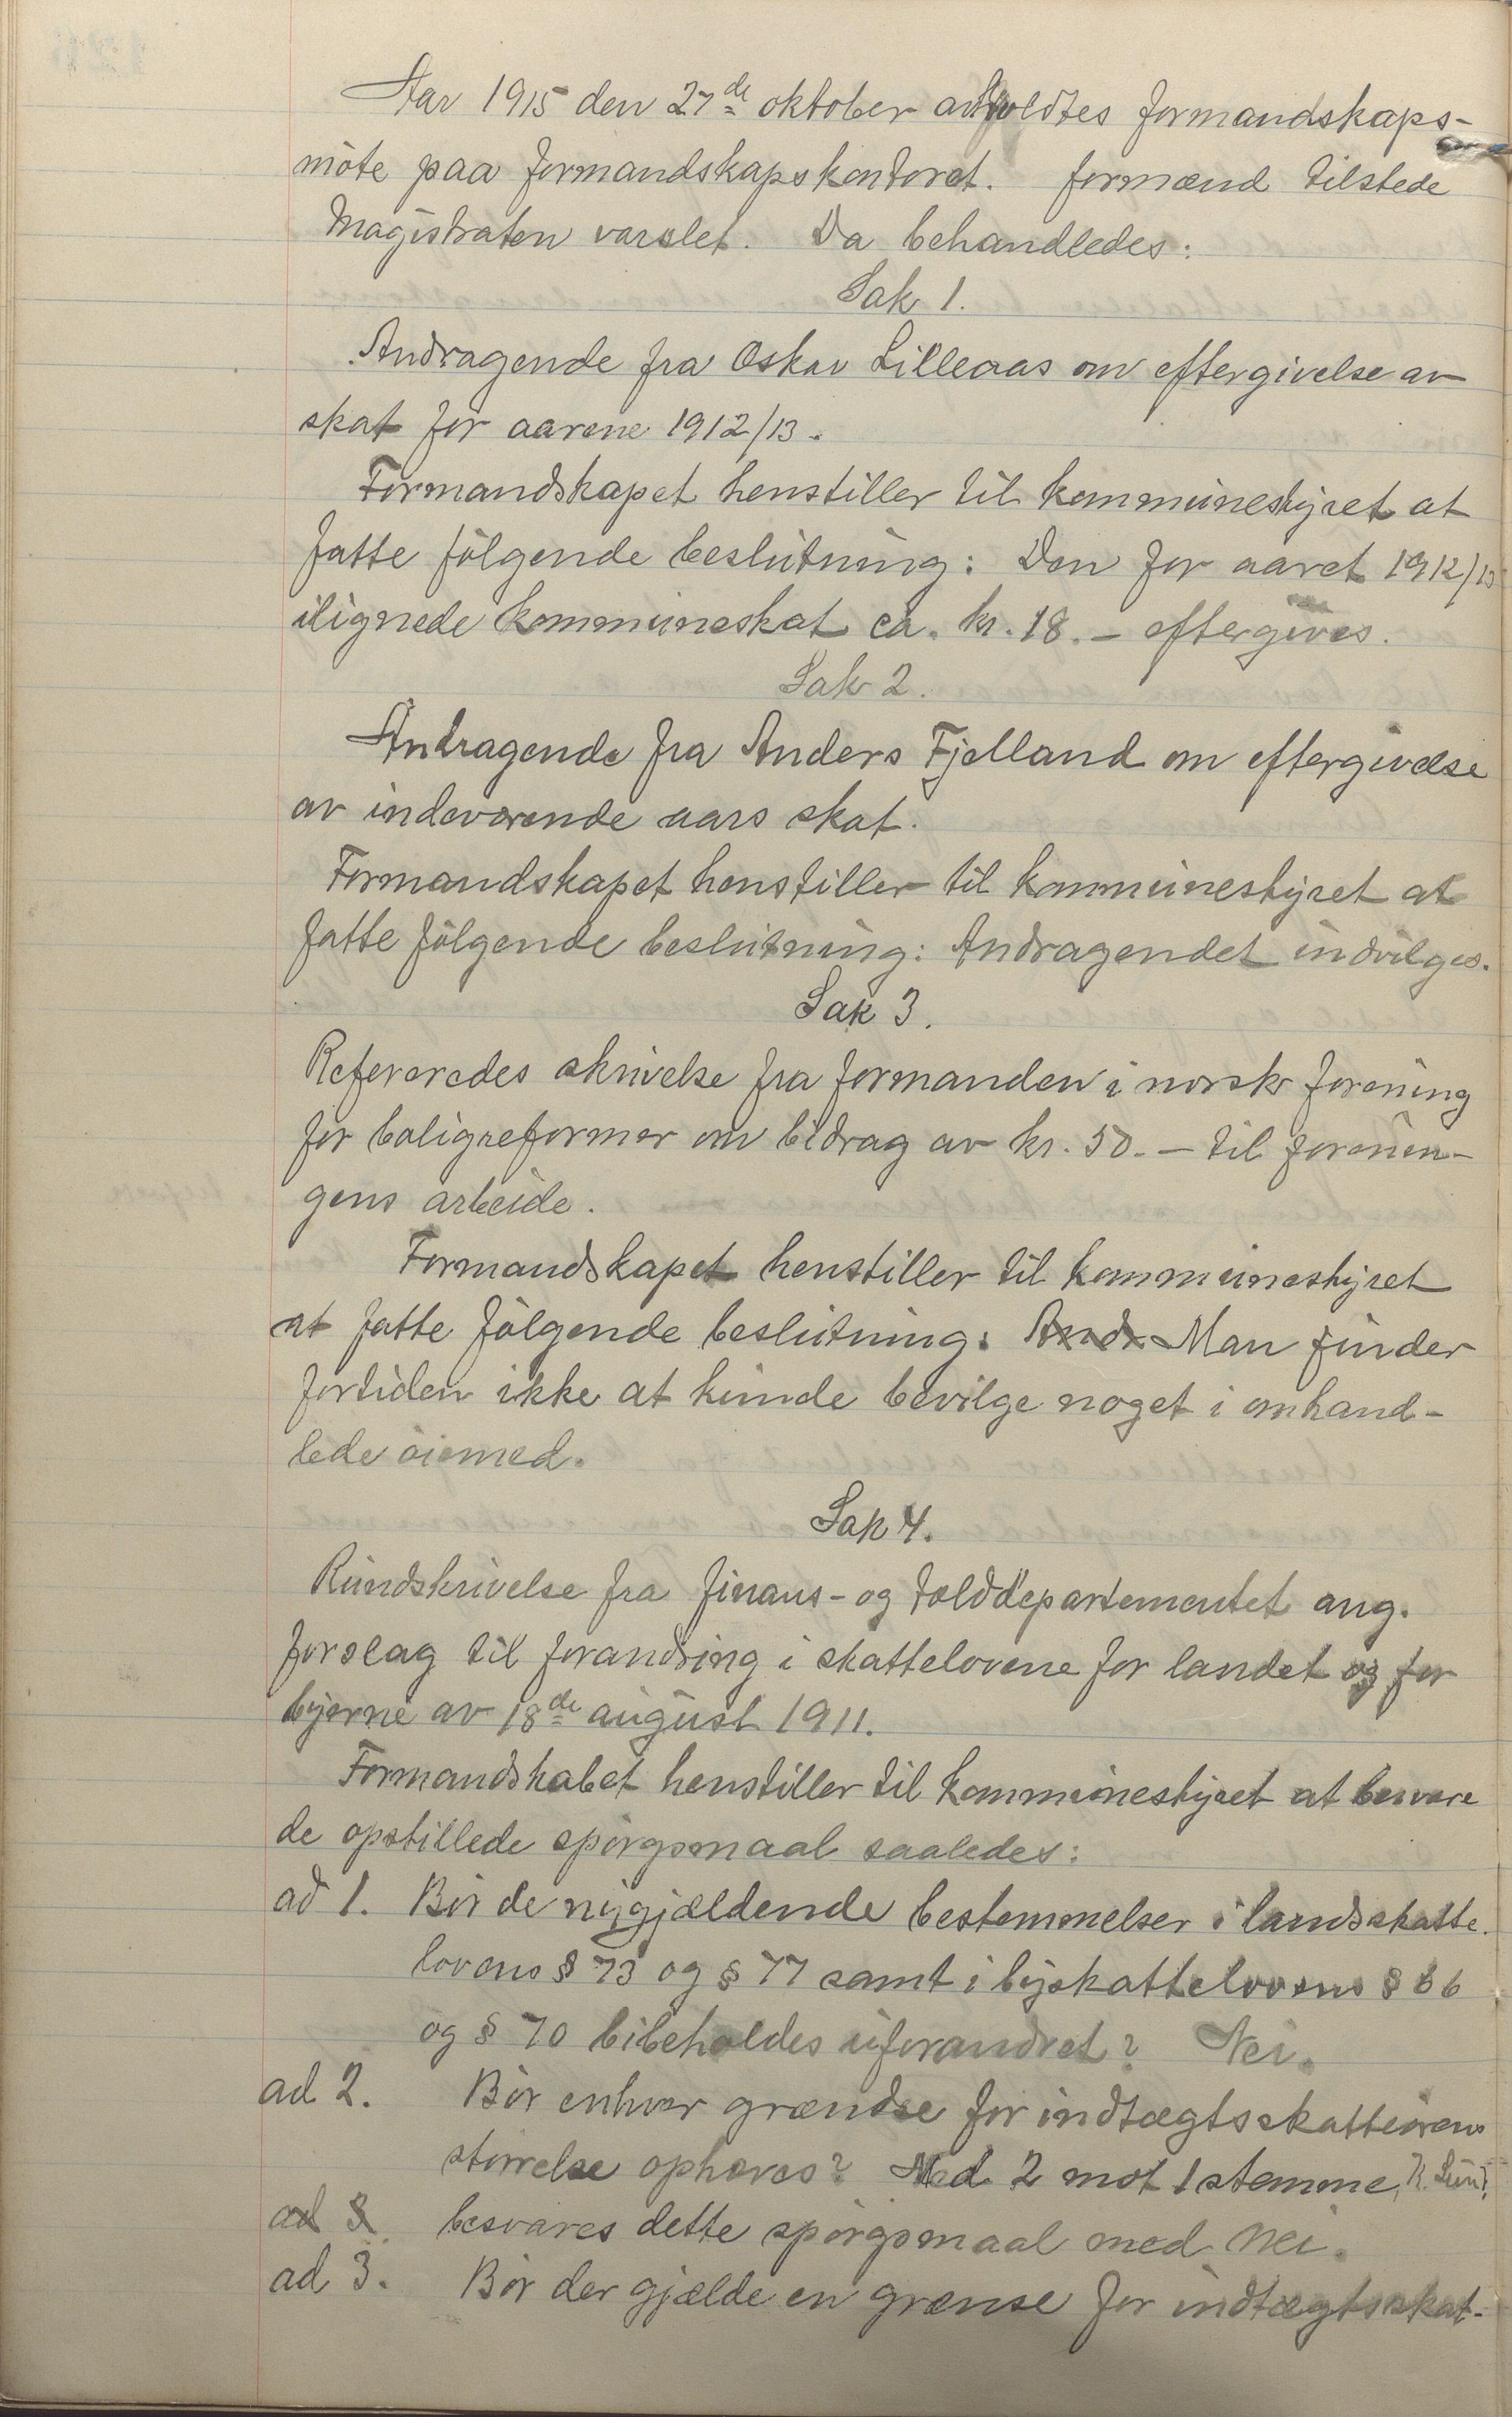 Aar 1915 den 27de oktober avholdtes formandskaps-
møte paa formandskapskontoret. formænd tilstede
Magistraten varslet. Da behandledes:
Sak 1.
Andragende fra Oskar Lilleaas om eftergivelse av
skat for aarene 1912/13.
Formandskapet henstiller til kommunestyret at
fatte følgende beslutning: Den for aaret 1912/13
ilignede kommuneskat ca. kr. 18.- eftergives.
Sak 2.
Andragende fra Anders Fjelland om eftergivelse
av indeværende aars skat.
Formandskapet henstiller til kommunestyret at
fatte følgende beslutning: Andragendet indvilges.
Sak 3.
Refereredes skrivelse fra formanden i norsk forening
for boligreformer om bidrag av kr. 50.- til forenin-
gens arbeide.
Formandskapet henstiller til kommunestyret
at fatte følgende beslutning: Andr Man finder
fortiden ikke at kunde bevilge noget i omhand-
lede øiemed.
Sak 4.
Rundskrivelse fra finans- og tolddepartementet ang.
forslag til forandring i skattelovene for landet og for
byerne av 18de august 1911.
Formandskabet henstiller til kommunestyret at besvare
de opstillede spørgsmaal saaledes:
ad 1. Bør de nugjældende bestemmelser i landsskatte-
lovens § 73 og § 77 samt i byskattelovens § 66
og § 70 bibeholdes uforandret? Nei.
ad 2. Bør enhver grændse for indtægtsskatteørens
størrelse ophæves? Med 2 mot 1 stemme, R. Lund,
ad 3 besvares dette spørgsmaal med nei.
ad 3. Bør der gjælde en grænse for indtægtsskat-